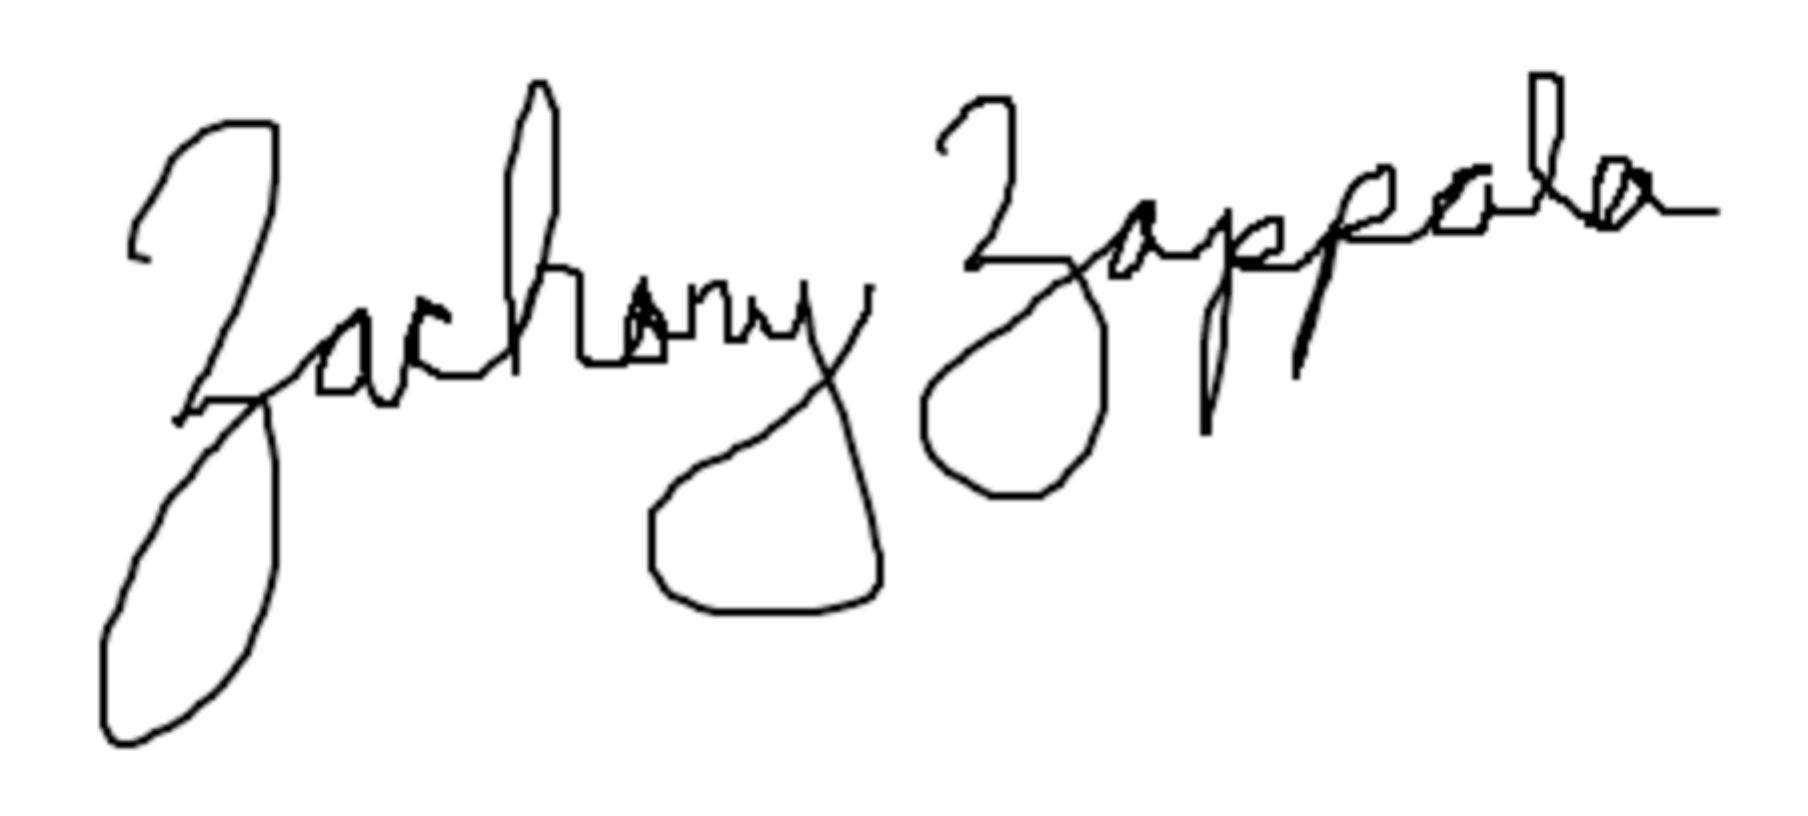 Zachary Zappala